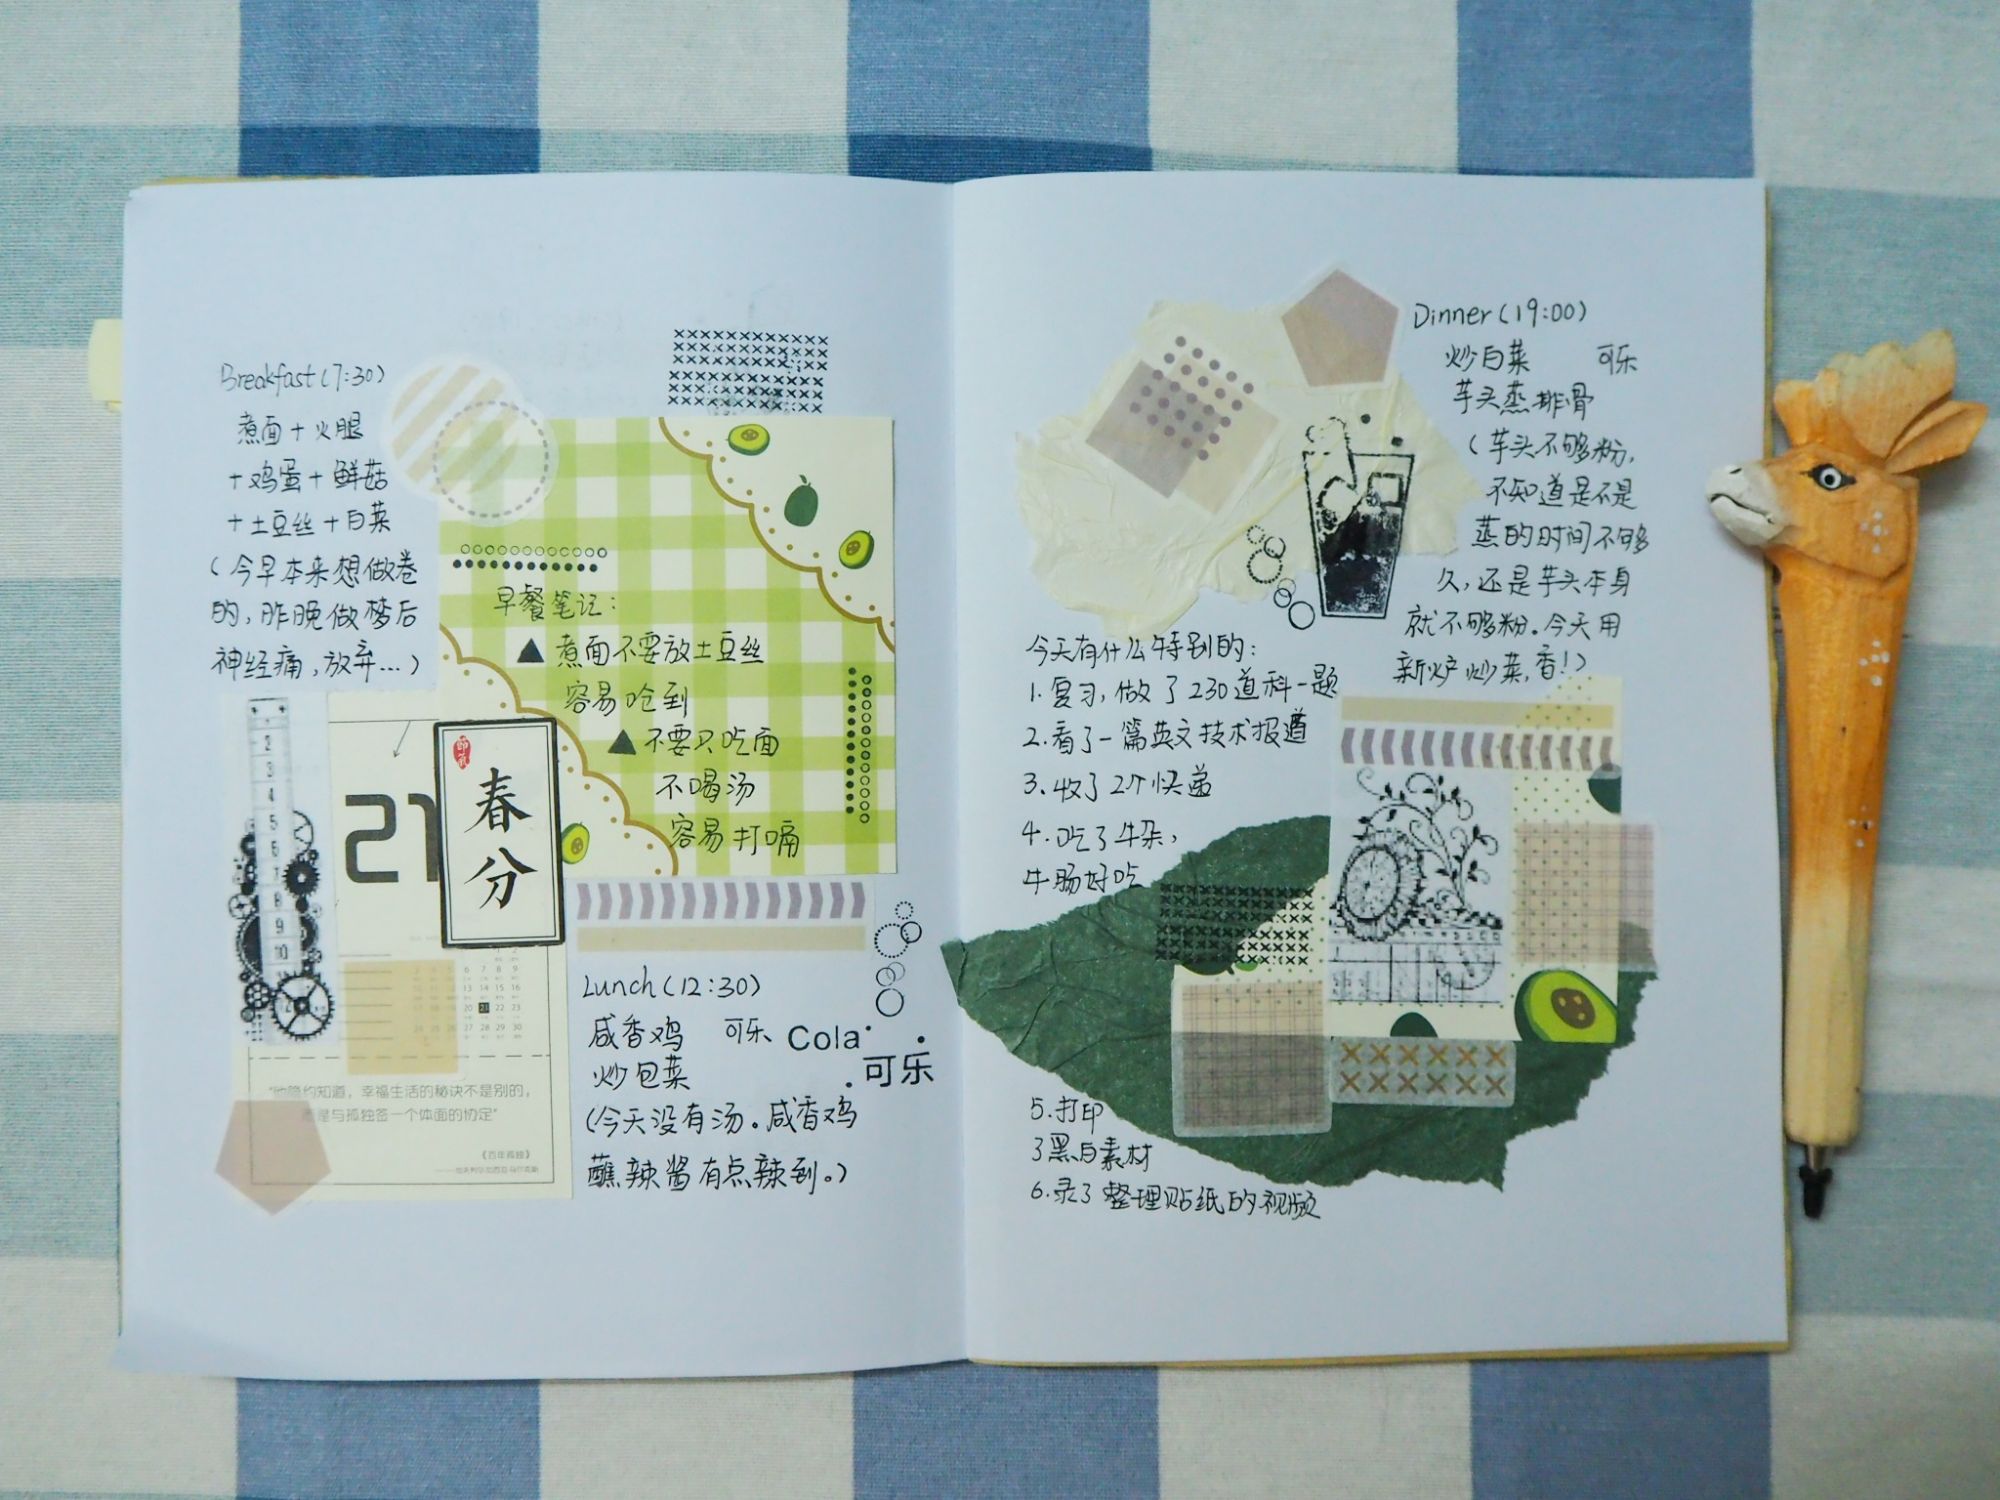 Breakfast(7:30)
煮面+火腿
+鸡蛋+鲜菇
+土豆丝+白菜
(今早本来想做卷
的,昨晚做梦后
神经痛,放弃...)
早餐笔记:
▲煮面不要放土豆丝
容易呛到
▲不要只吃面
不喝汤
容易打嗝
2
3
4
5
6
7
8
9
10
21
春分
6 7 8 9
13 14 15 16
20 21 22 23
27 28 29 30
幸福生活的秘诀不是别的,
是与孤独签一个体面的协定"
《百年孤独》
Lunch(12:30)
咸香鸡 可乐 Cola
炒包菜 可乐
(今天没有汤。咸香鸡
蘸辣酱有点辣到。)
Dinner(19:00)
炒白菜 可乐
芋头蒸排骨
(芋头不够粉,
不知道是不是
蒸的时间不够
久,还是芋头本身
就不够粉。今天用
新炉炒菜,香!)
今天有什么特别的:
1.复习,做了230道科一题
2.看了一篇英文技术报道
3.收了2个快递
4.吃了牛杂,
牛肠好吃
5.打印
了黑白素材
6.录了整理贴纸的视频